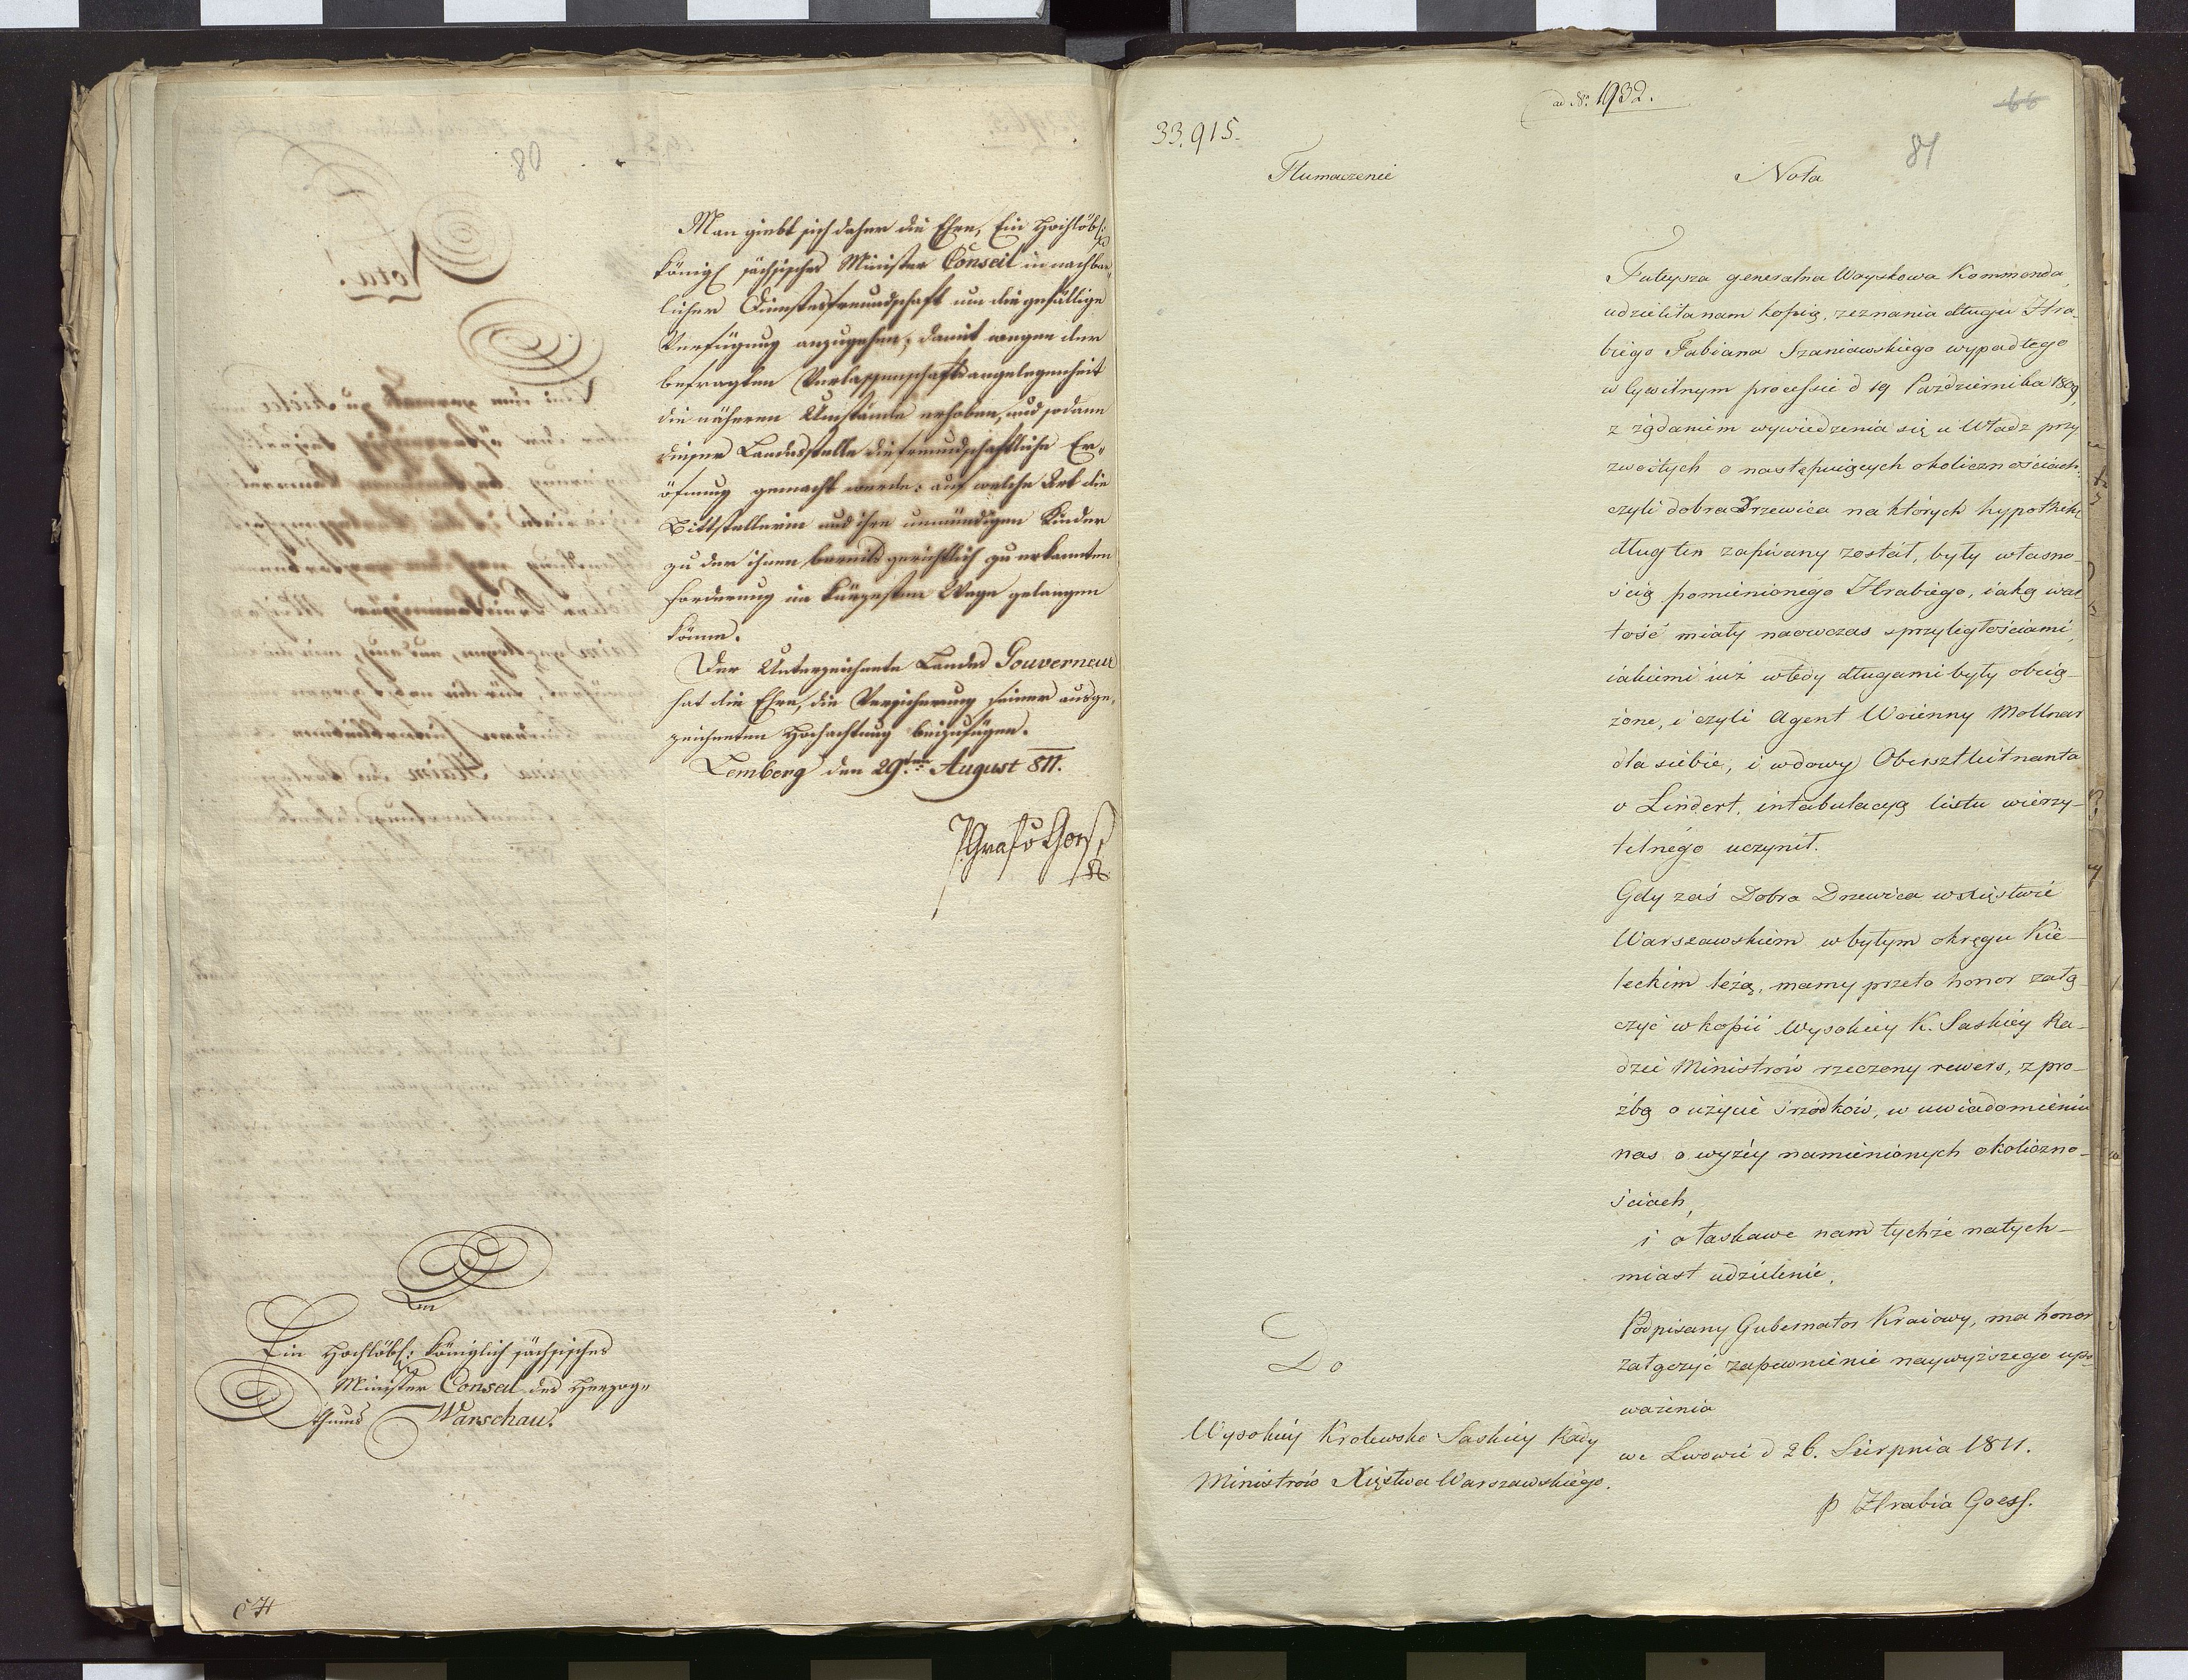 80
Man giebt sich daher die Ehre, Ein Hochlöbl:
königl sächsisches Minister Conseil in nachbar„
licher Dienstesfreundschaft um die gefällige
Verfügung anzugehen, damit wegen der
befragten Verlassenschaftsangelegenheit
die näheren Umstände erhoben, und sodann
dieser Landesstelle die freundschaftliche Er„
öfnung gemacht werde: auf welche Art die
Bittstellerin und ihre unmündigen Kinder
zu der ihnen bereits gerichtlich zuerkannten
Forderung im kürzesten Wege gelangen
könne.
Der Unterzeichnete Landes Gouverneur
hat die Ehre, die Versicherung seiner ausge„
zeichneten Hochachtung beizufügen.
Lemberg den 29ten August 811.
P. Graf v Goess
An
Ein Hochlöbl: königlich sächsisches
Minister Conseil des Herzog„
thums Warschau.
ad No. 1932.
66
33,915.
81
Tlumaczenie
Nota
Tuteysza generalna Woyskowa Kommenda,
udzieliła nam kopią, zeznania długu Hra-
biego Fabiana Szaniawskiego wypadłego
w Cywilnym processie d 19 Października 1809,
z żądaniem wywiedzenia się u Władz przy
zwoitych o następuiących okolicznościach.
czyli dobra Drzewica na których hypotheki
dług ten zapisany został, były własno-
ścią pomienionego Hrabiego, iaką war
tość miały naowczas z przyległościami,
iakiemi iuż wtedy długami były obcią-
żone, i czyli Agent Woienny Mollnar
dla siebie, i wdowy Obersztleitnanta
v Lindert, intabulacyą listu wierzy-
telnego uczynił.
Gdy zaś Dobra Drzewica w Xięstwie
Warszawskiem w byłym okręgu Kie-
leckim leżą, mamy przeto honor załą-
czyć w kopii Wysokiey K. Saskiey Ra-
dzie Ministrów rzeczony rewers, z pro-
źbą o użycie srzodków, w uwiadomieniu
nas o wyżéy namienionych okoliczno-
ściach,
i o łaskawe nam tychże natych-
miast udzielenie,
Podpisany Gubernator Kraiowy, ma honor
załączyć zapewnienie naywyższego upo
ważenia
we Lwowie d 26. Sierpnia 1811.
p Hrabia Goess.
Do
Wysokiey Krolewsko Saskiey Rady
Ministrów Xięstwa Warszawskiego.